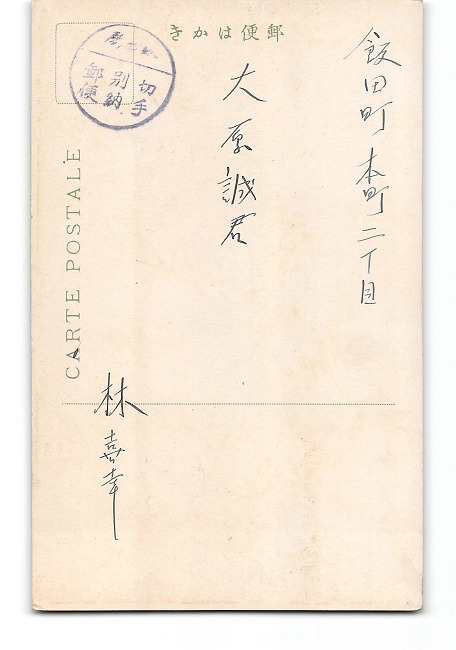 郵便はかき
飯田町本町二丁目
大原誠君
林喜幸
切手
別納
郵便
CARTE POSTALE